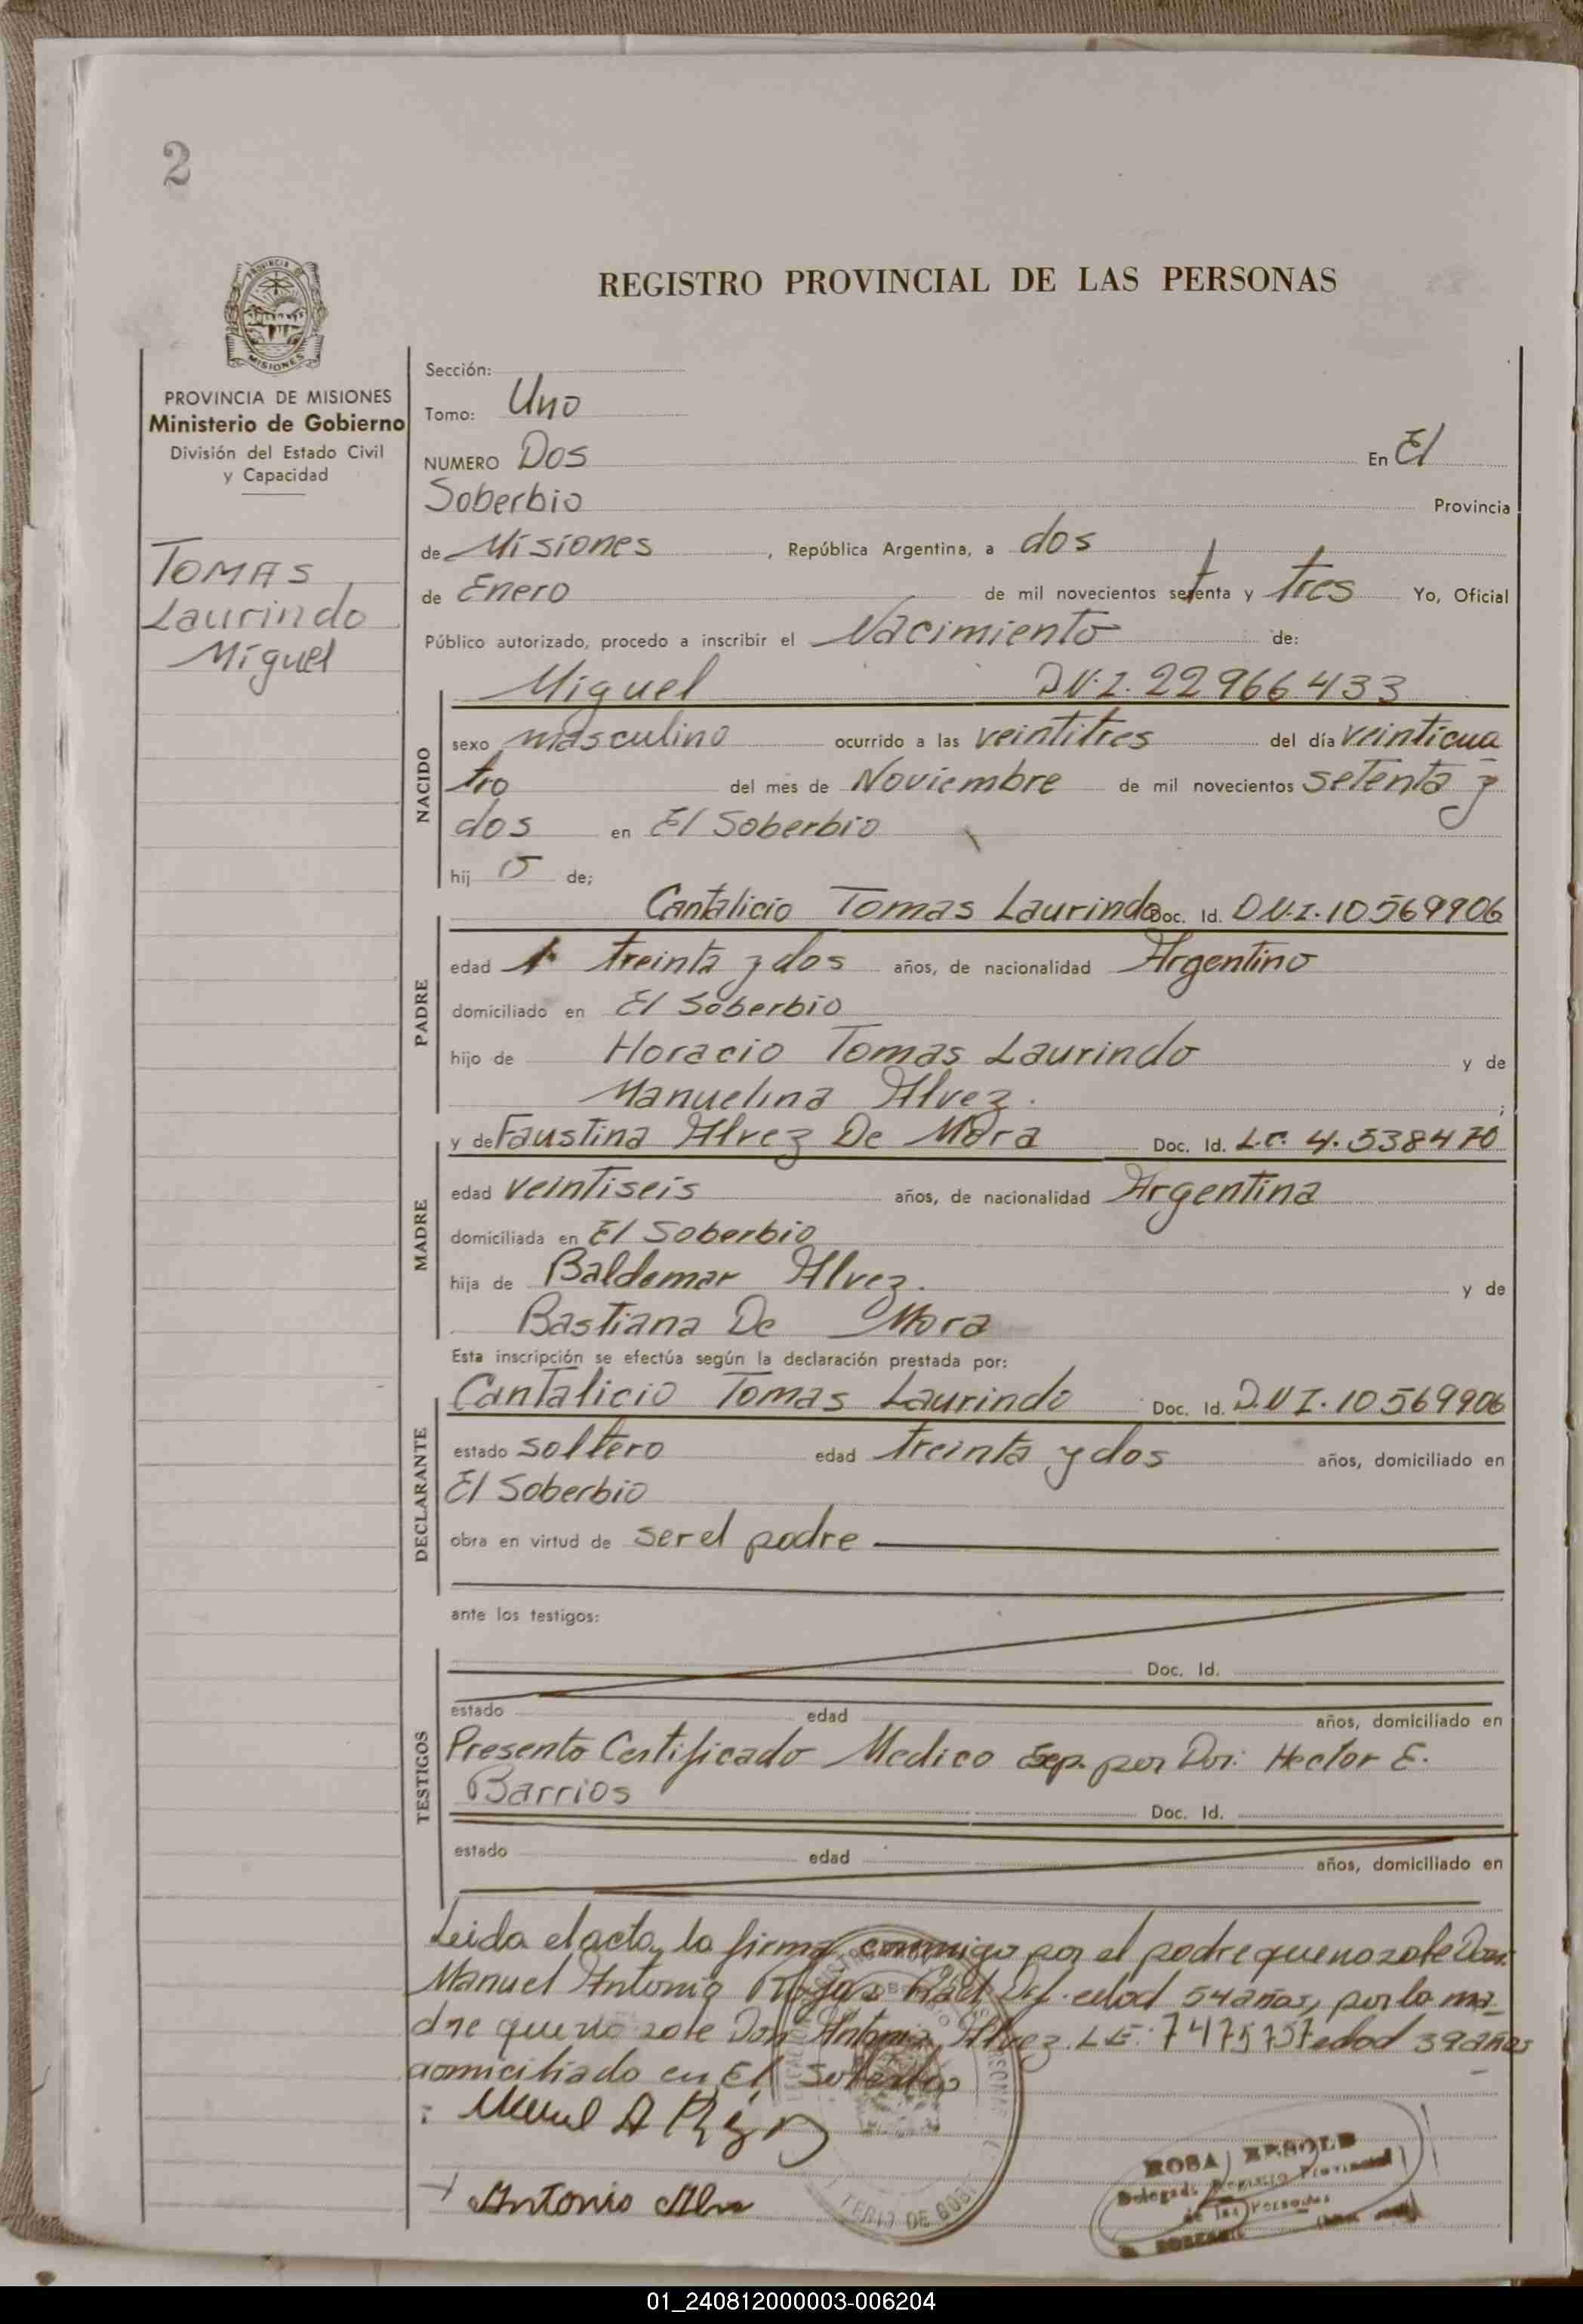 2
REGISTRO PROVINCIAL DE LAS PERSONAS
PROVINCIA DE
MISIONES
PROVINCIA DE MISIONES
Ministerio de Gobierno
División del Estado Civil
y Capacidad
TOMAS
Laurindo
Miguel
Sección:
Tomo: Uno
NUMERO Dos En El
Soberbio Provincia
de Misiones, República Argentina, a dos
de Enero de mil novecientos setenta y tres Yo, Oficial
Público autorizado, procedo a inscribir el Nacimiento de:
Miguel D.N.I. 22966433
NACIDO
sexo masculino ocurrido a las veintitres del día veinticua
tro del mes de Noviembre de mil novecientos setenta y
dos en El Soberbio
hij o de;
PADRE
Cantalicio Tomas Laurindo Doc. Id. D.N.I. 10569906
edad treinta y dos años, de nacionalidad Argentino
domiciliado en El Soberbio
hijo de Horacio Tomas Laurindo y de
Manuelina Alvez.;
MADRE
y de Faustina Alvez De Mora Doc. Id. L.C. 4.538470
edad veintiseis años, de nacionalidad Argentina
domiciliada en El Soberbio
hija de Baldemar Alvez. y de
Bastiana De Mora
Esta inscripción se efectúa según la declaración prestada por:
DECLARANTE
Cantalicio Tomas Laurindo Doc. Id. D.N.I. 10569906
estado soltero edad treinta y dos años, domiciliado en
El Soberbio
obra en virtud de ser el padre
ante los testigos:
TESTIGOS
Doc. Id.
estado edad años, domiciliado en
Presento Certificado Medico Exp. por Dor: Hector E.
Barrios
Doc. Id.
estado edad años, domiciliado en
Leida el acta, la firma conmigo por el padre que no sabe Don
Manuel Antonio edad 54 años, por la ma-
dre que no sabe Don Antonio Alvez L.E. edad 39 años
domiciliado en El Soberbio
Antonio Alv
ROSA
Delegada Registro Provincial
de las Personas
01_240812000003-006204